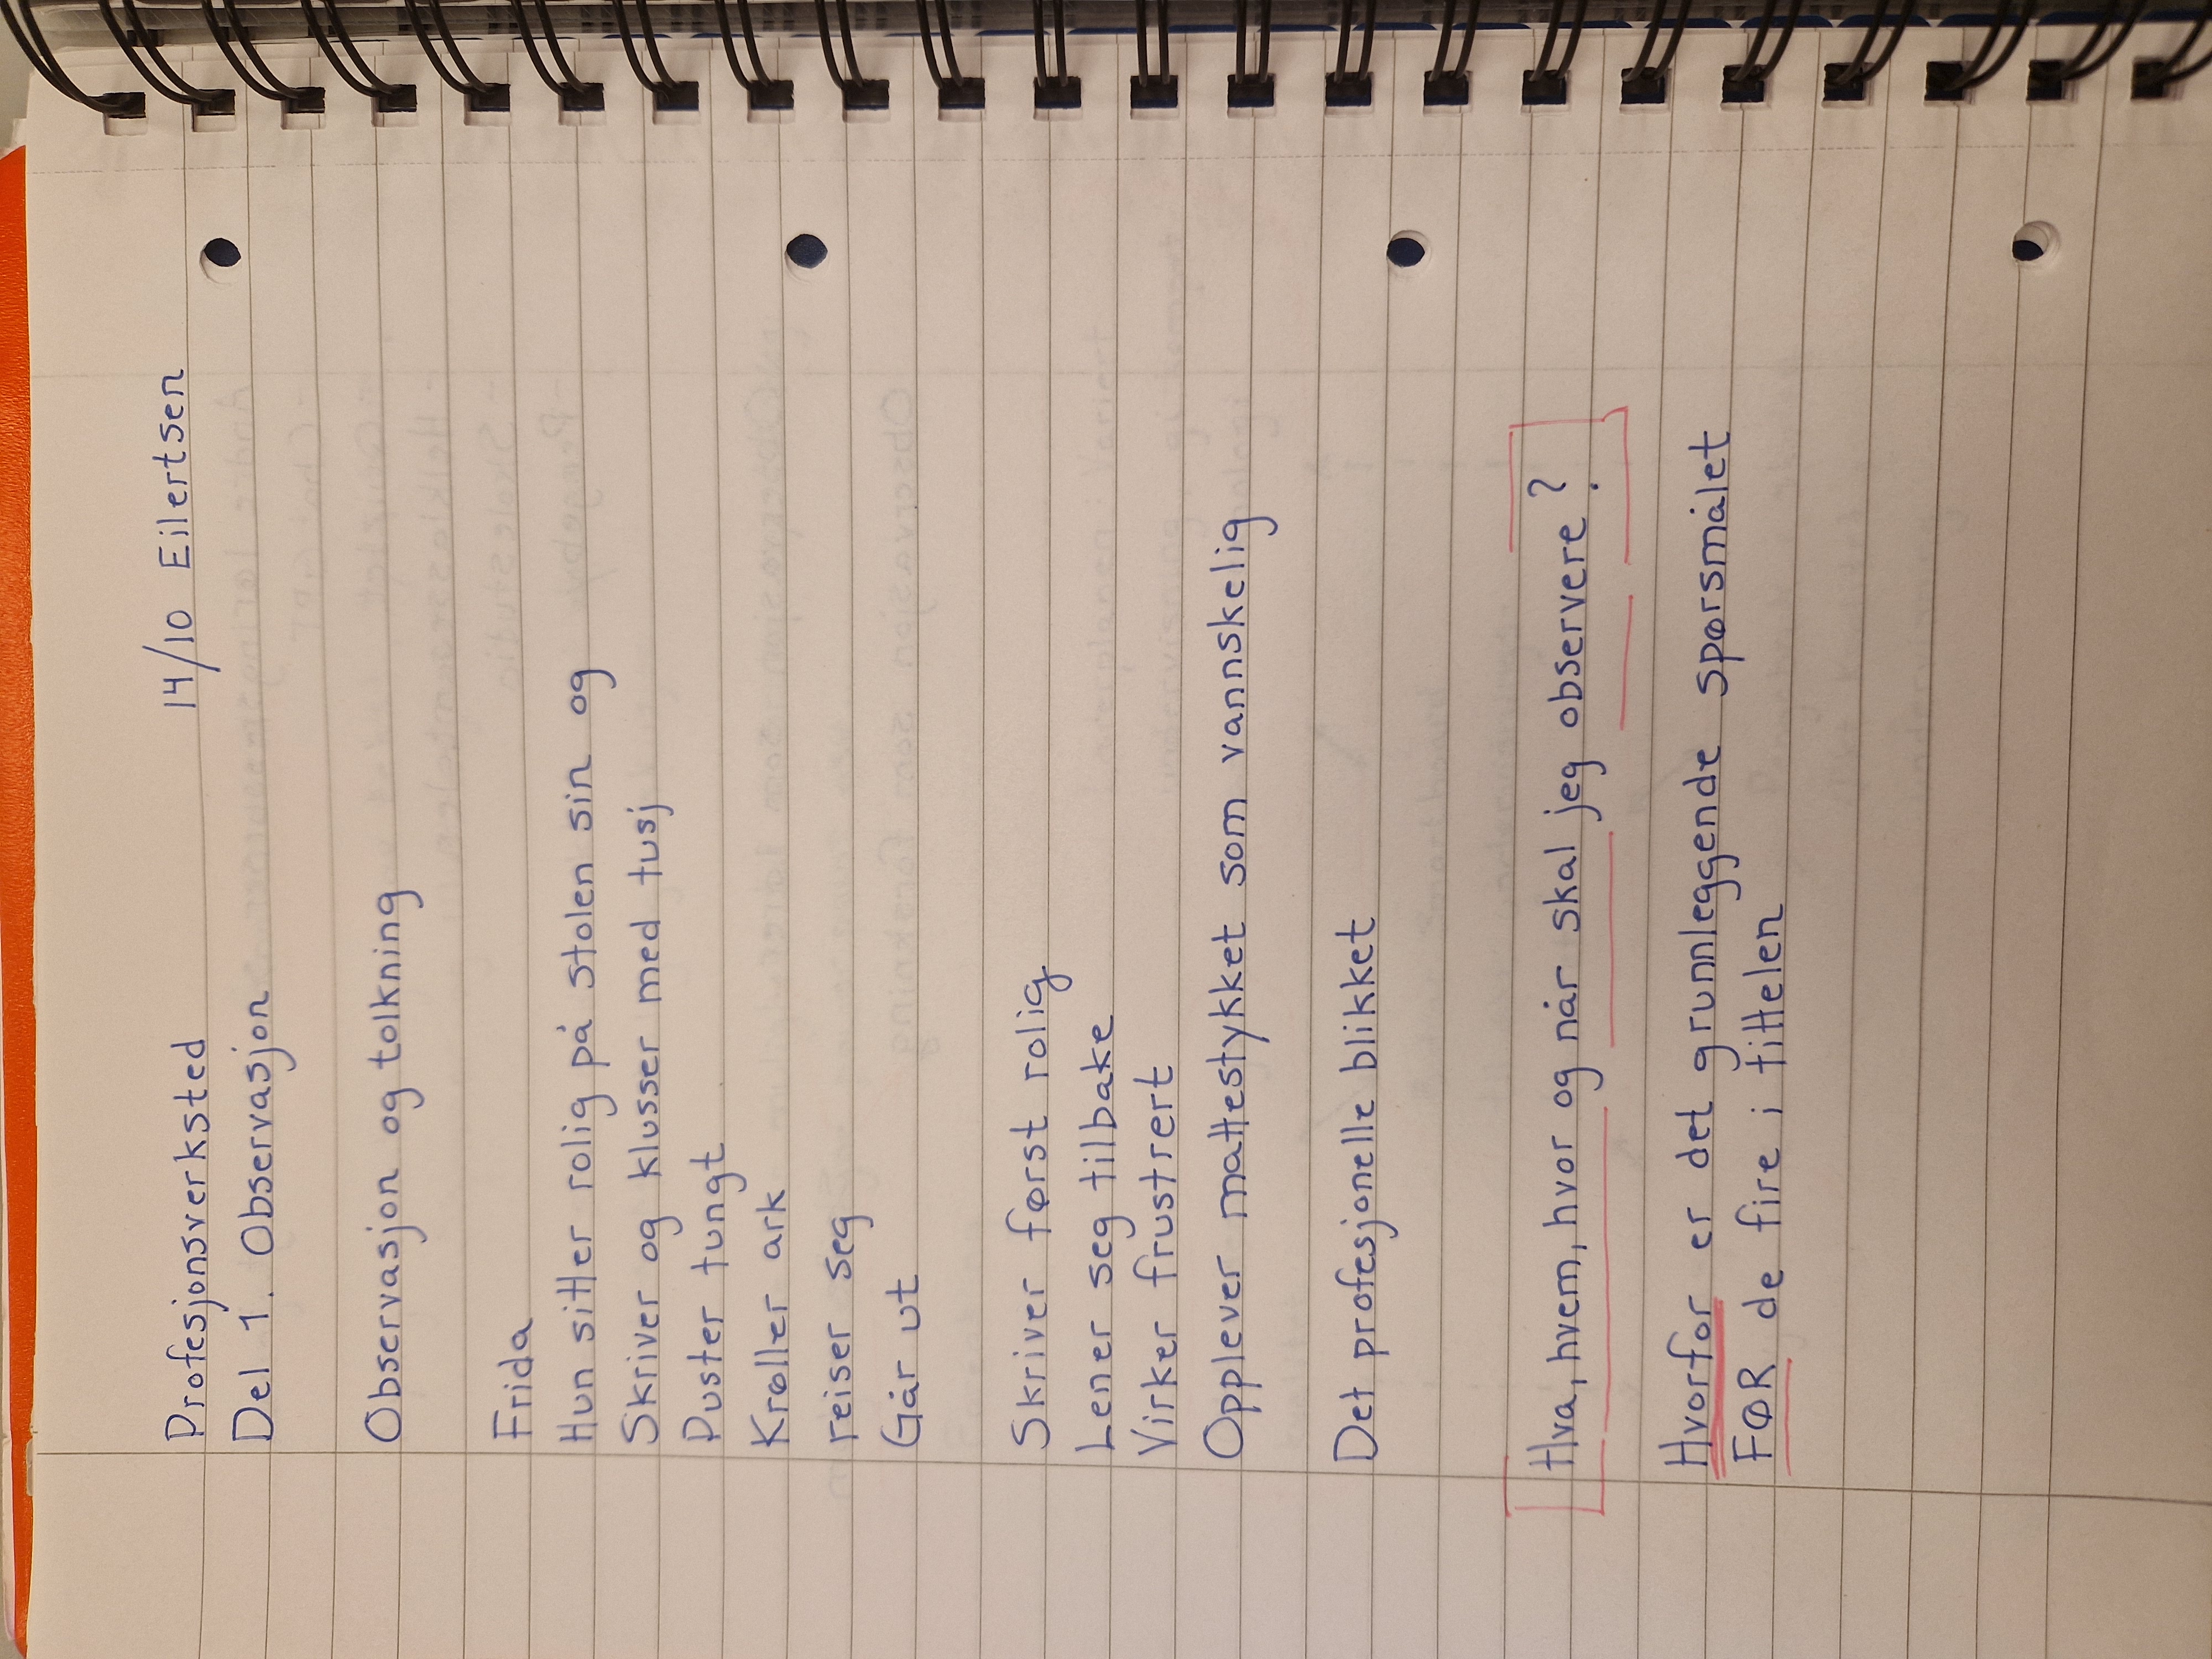 Profesjonsverksted 14/10 Eilertsen
Del 1. Observasjon
Observasjon og tolkning
Frida
Hun sitter rolig på stolen sin og
Skriver og klusser med tusj
Puster tungt
Krøller ark
reiser seg
Går ut
Skriver først rolig
Lener seg tilbake
Virker frustrert
Opplever mattestykket som vannskelig
Det profesjonelle blikket
Hva, hvem, hvor og når skal jeg observere?
Hvorfor er det grunnleggende spørsmålet
FØR de fire i tittelen